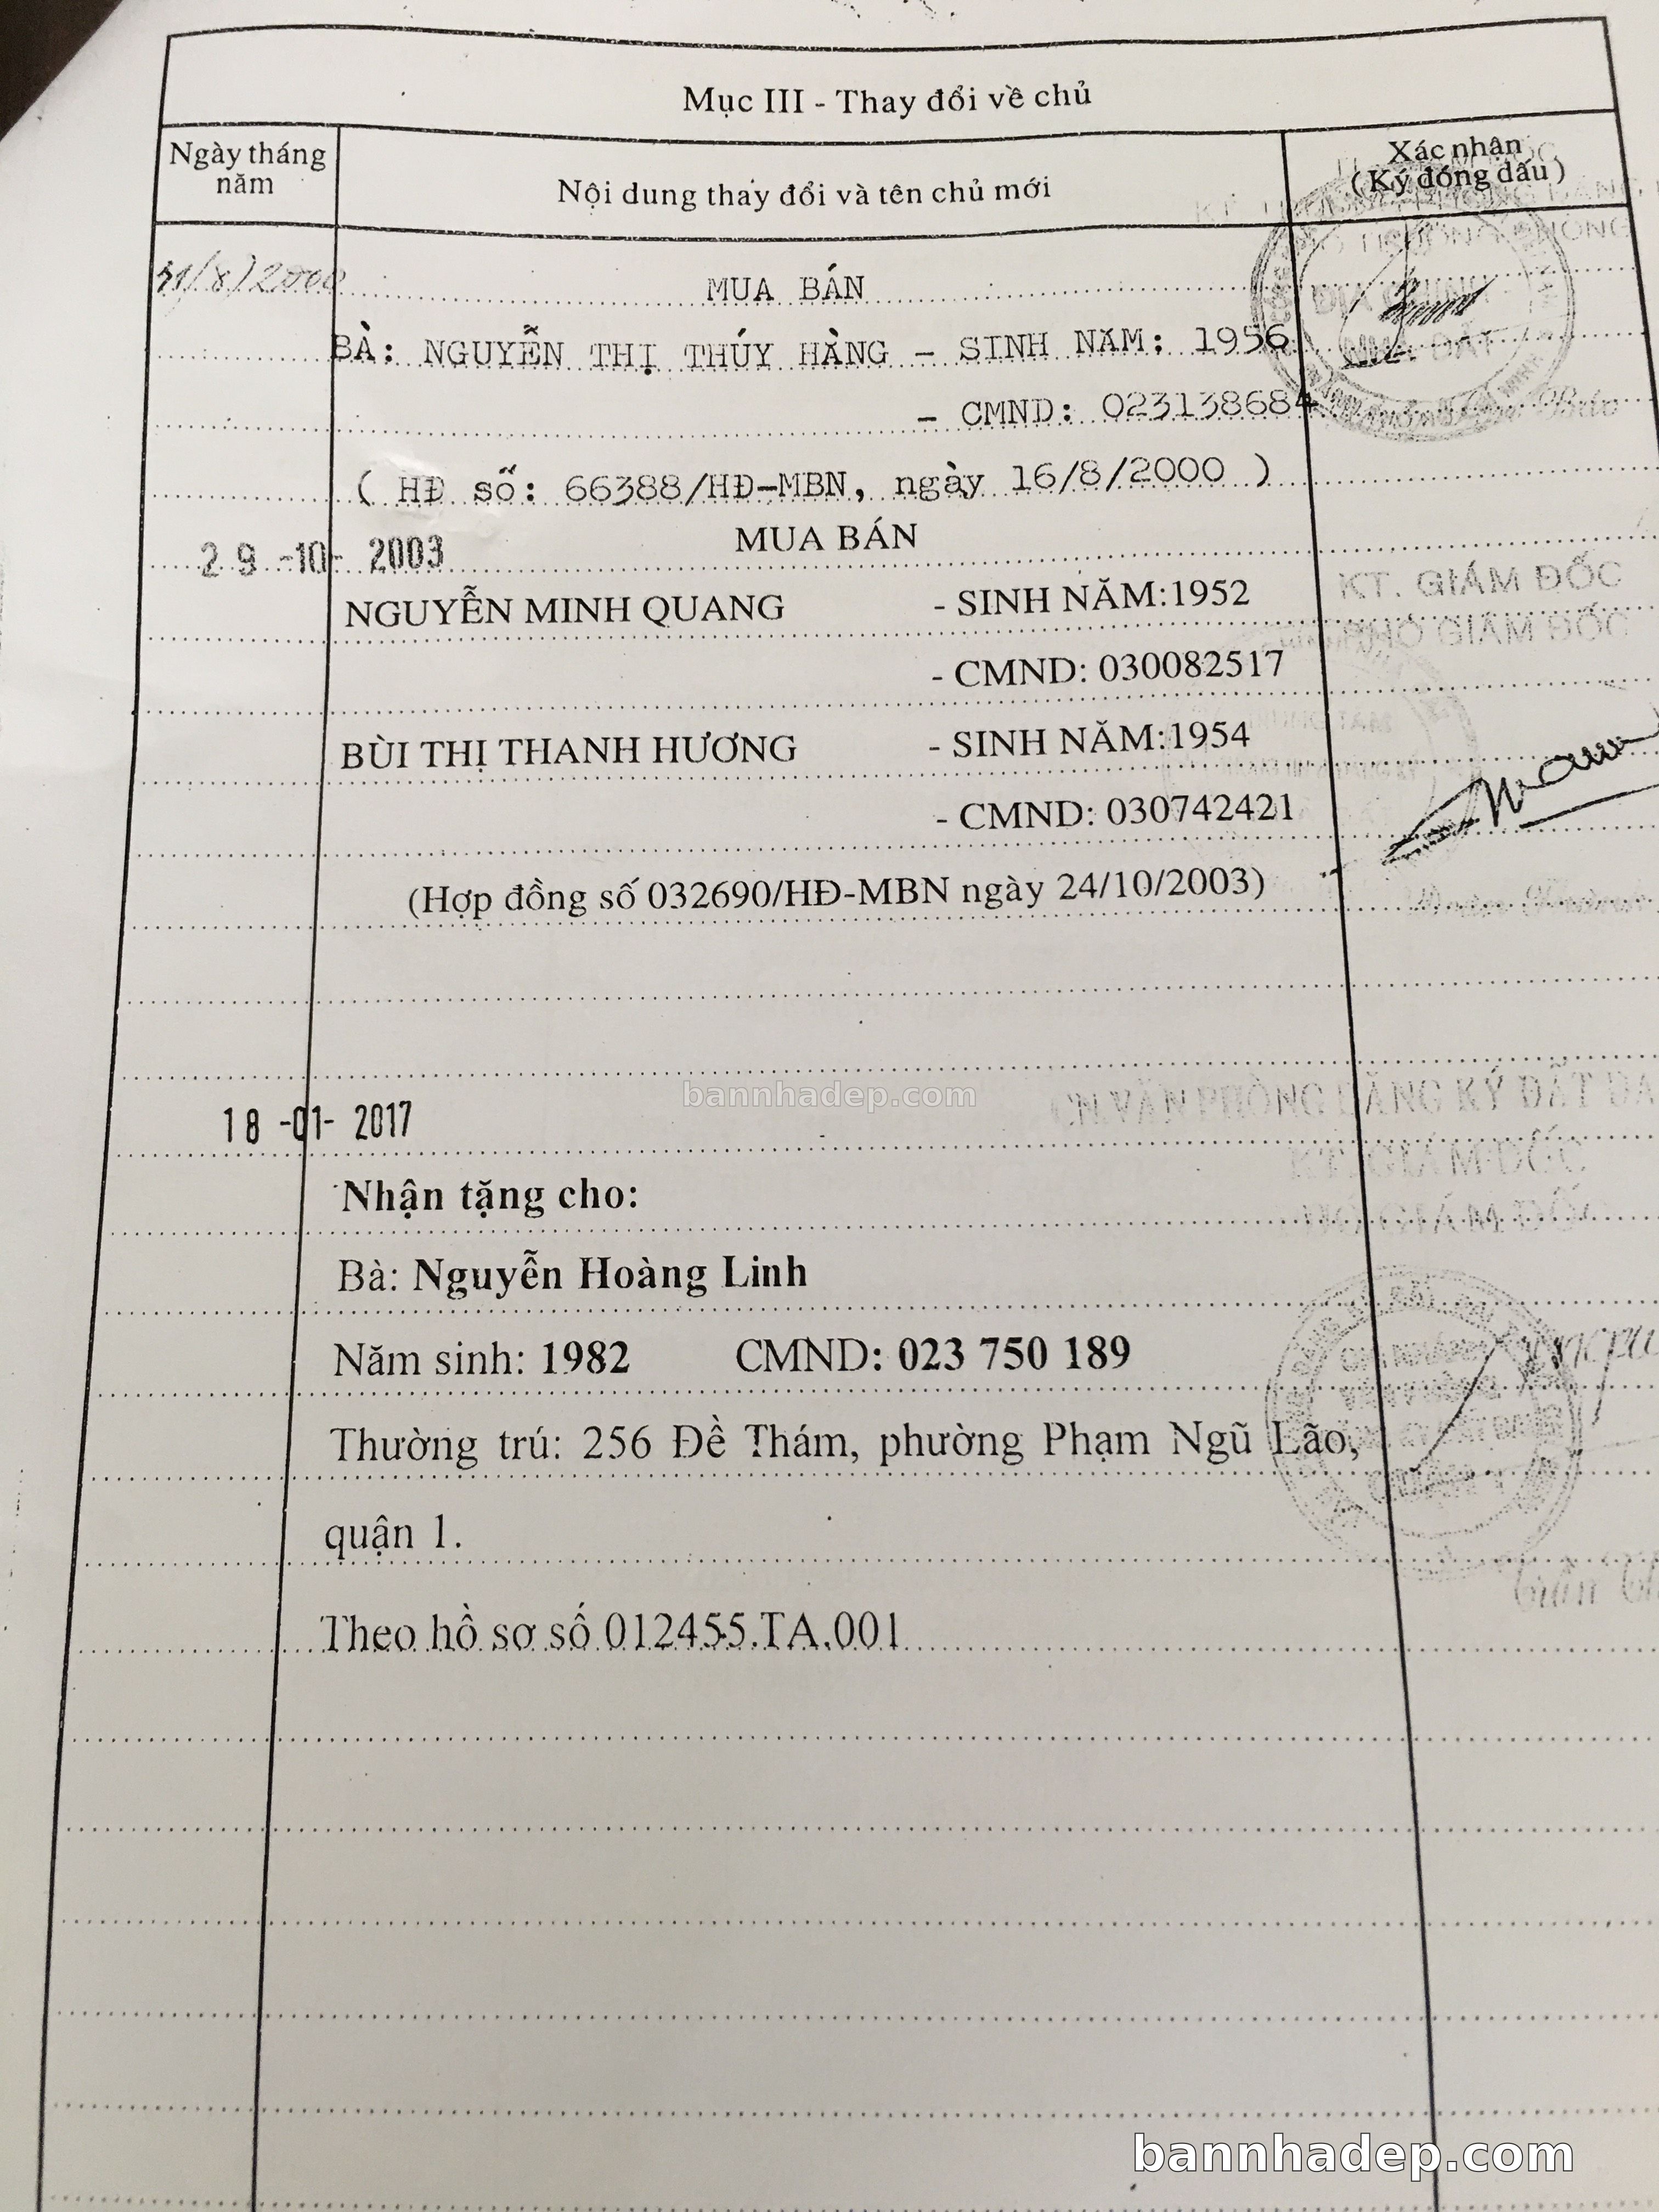 Mục III - Thay đổi về chủ
Ngày tháng năm
Nội dung thay đổi và tên chủ mới
Xác nhận
( Ký đóng dấu )
/8/2000
MUA BÁN
BÀ: NGUYỄN THỊ THÚY HÀNG - SINH NĂM: 1956
- CMND: 023138684
( HĐ số: 66388/HĐ-MBN, ngày 16/8/2000 )
29 -10- 2003
MUA BÁN
NGUYỄN MINH QUANG - SINH NĂM:1952
KT. GIÁM ĐỐC
PHÓ GIÁM ĐỐC
- CMND: 030082517
BÙI THỊ THANH HƯƠNG - SINH NĂM:1954
- CMND: 030742421
(Hợp đồng số 032690/HĐ-MBN ngày 24/10/2003)
bannhadep.com
CN.VĂN PHÒNG ĐĂNG KÝ ĐẤT ĐA
18 -01- 2017
KT. GIÁM ĐỐC
PHÓ GIÁM ĐỐC
Nhận tặng cho:
Bà: Nguyễn Hoàng Linh
Năm sinh: 1982 CMND: 023 750 189
Thường trú: 256 Đề Thám, phường Phạm Ngũ Lão,
quận 1.
Theo hồ sơ số 012455.TA.001
bannhadep.com